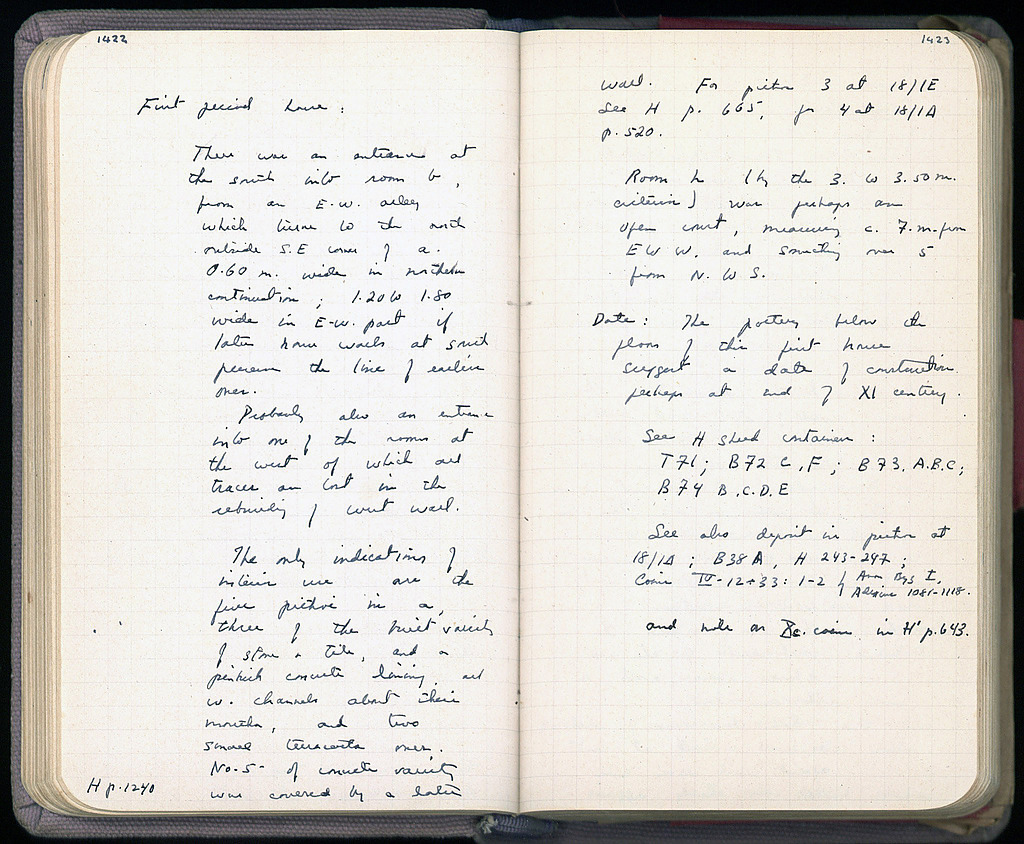 1422
First period house :
There was an entrance at
the south into room b,
from an E-W. alley
which turns to the north
outside S.E corner of a.
0.60 m. wide in northern
continuation ; 1.20 to 1.80
wide in E-W. part if
later house walls at south
preserve the line of earlier
ones.
Probably also an entrance
into one of the rooms at
the west of which all
traces are lost in the
rebuilding of west wall.
The only indications of
interior use are the
five pithoi in a,
three of the built variety
of stone & tile, and a
pinkish concrete lining, all
w. channels about their
mouths, and two
small terracotta ones.
No. 5 of concrete variety
was covered by a later
H p. 1240
1423
wall. For pithos 3 at 18/1E
see H p. 665, for 4 at 18/1A
p. 520.
Room h (by the 3. to 3.50 m.
criterion) was perhaps an
open court, measuring c. 7. m. from
E to W. and something over 5
from N. to S.
Date : The pottery below the
floors of this first house
suggest a date of construction
perhaps at end of XI century.
See H shed containers :
T71 ; B72 C, F ; B73. A.B.C ;
B74 B.C.D.E
See also deposit in pithos at
18/1A ; B38A, H 243-247 ;
Coins IV-12+33 : 1-2 { Anon Byz I,
Alexius 1081-1118.
and note on coins in H p. 643.